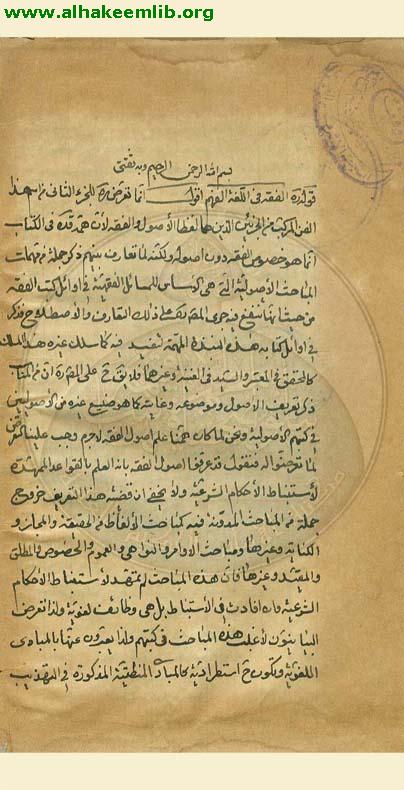 www.alhakeemlib.org
بسم الله الرحمن الرحيم وبه ثقتي
قوله ره الفقه في اللغة الفهم اقول انما تعرض ره للجزء الثاني من اسم هذا
الفن المركب من الجزئين الذين هما لفظا الاصول والفقه لان همه قده في الكتاب
انما هو خصوص الفقه دون اصوله ولكنه لما تعارف بينهم ذكر جملة من مهمات
المباحث الاصولية التي هي كالاساس للمسائل الفقهية في اوائل كتب الفقه
من حيث انها تنفع فيه جرى المصـ على ذلك التعارف والاصطلاح فذكر
في اوايل كتابه هذه النبذة المهمة لتفيد فيه كما سلك غيره هذا المسلك
كالمحقق في المعتبر والسيد في الغنية وغيرهما فلا يتجه ح على المصـ ره ان
ذكر تعريف الاصول وموضوعه وغايته كما هو صنيع غيره من الاصوليين
في كتبهم الاصولية ونحن لما كان همنا علم اصول الفقه لاجرم وجب علينا
لما فنقول قد عرفوا اصول الفقه بانه العلم بالقواعد الممهدة
لاستنباط الاحكام الشرعية ولا يخفى ان قضية هذا التعريف خروج
جملة من المباحث المدونة فيه كمباحث الالفاظ من الحقيقة والمجاز و
الكناية وغيرها ومباحث الاوامر والنواهي والعموم والخصوص والمطلق
والمقيد وغيرها فان هذه المباحث لم تمهد لاستنباط الاحكام
الشرعية وان افادت في الاستنباط بل هي وظائف لغوية ولذا تعرض
البيانيون لاغلب هذه المباحث في كتبهم ولذا يعبرون عنها بالمبادي
اللغوية وتكون ح استطرادية كالمبادي المنطقية المذكورة في التهذيب